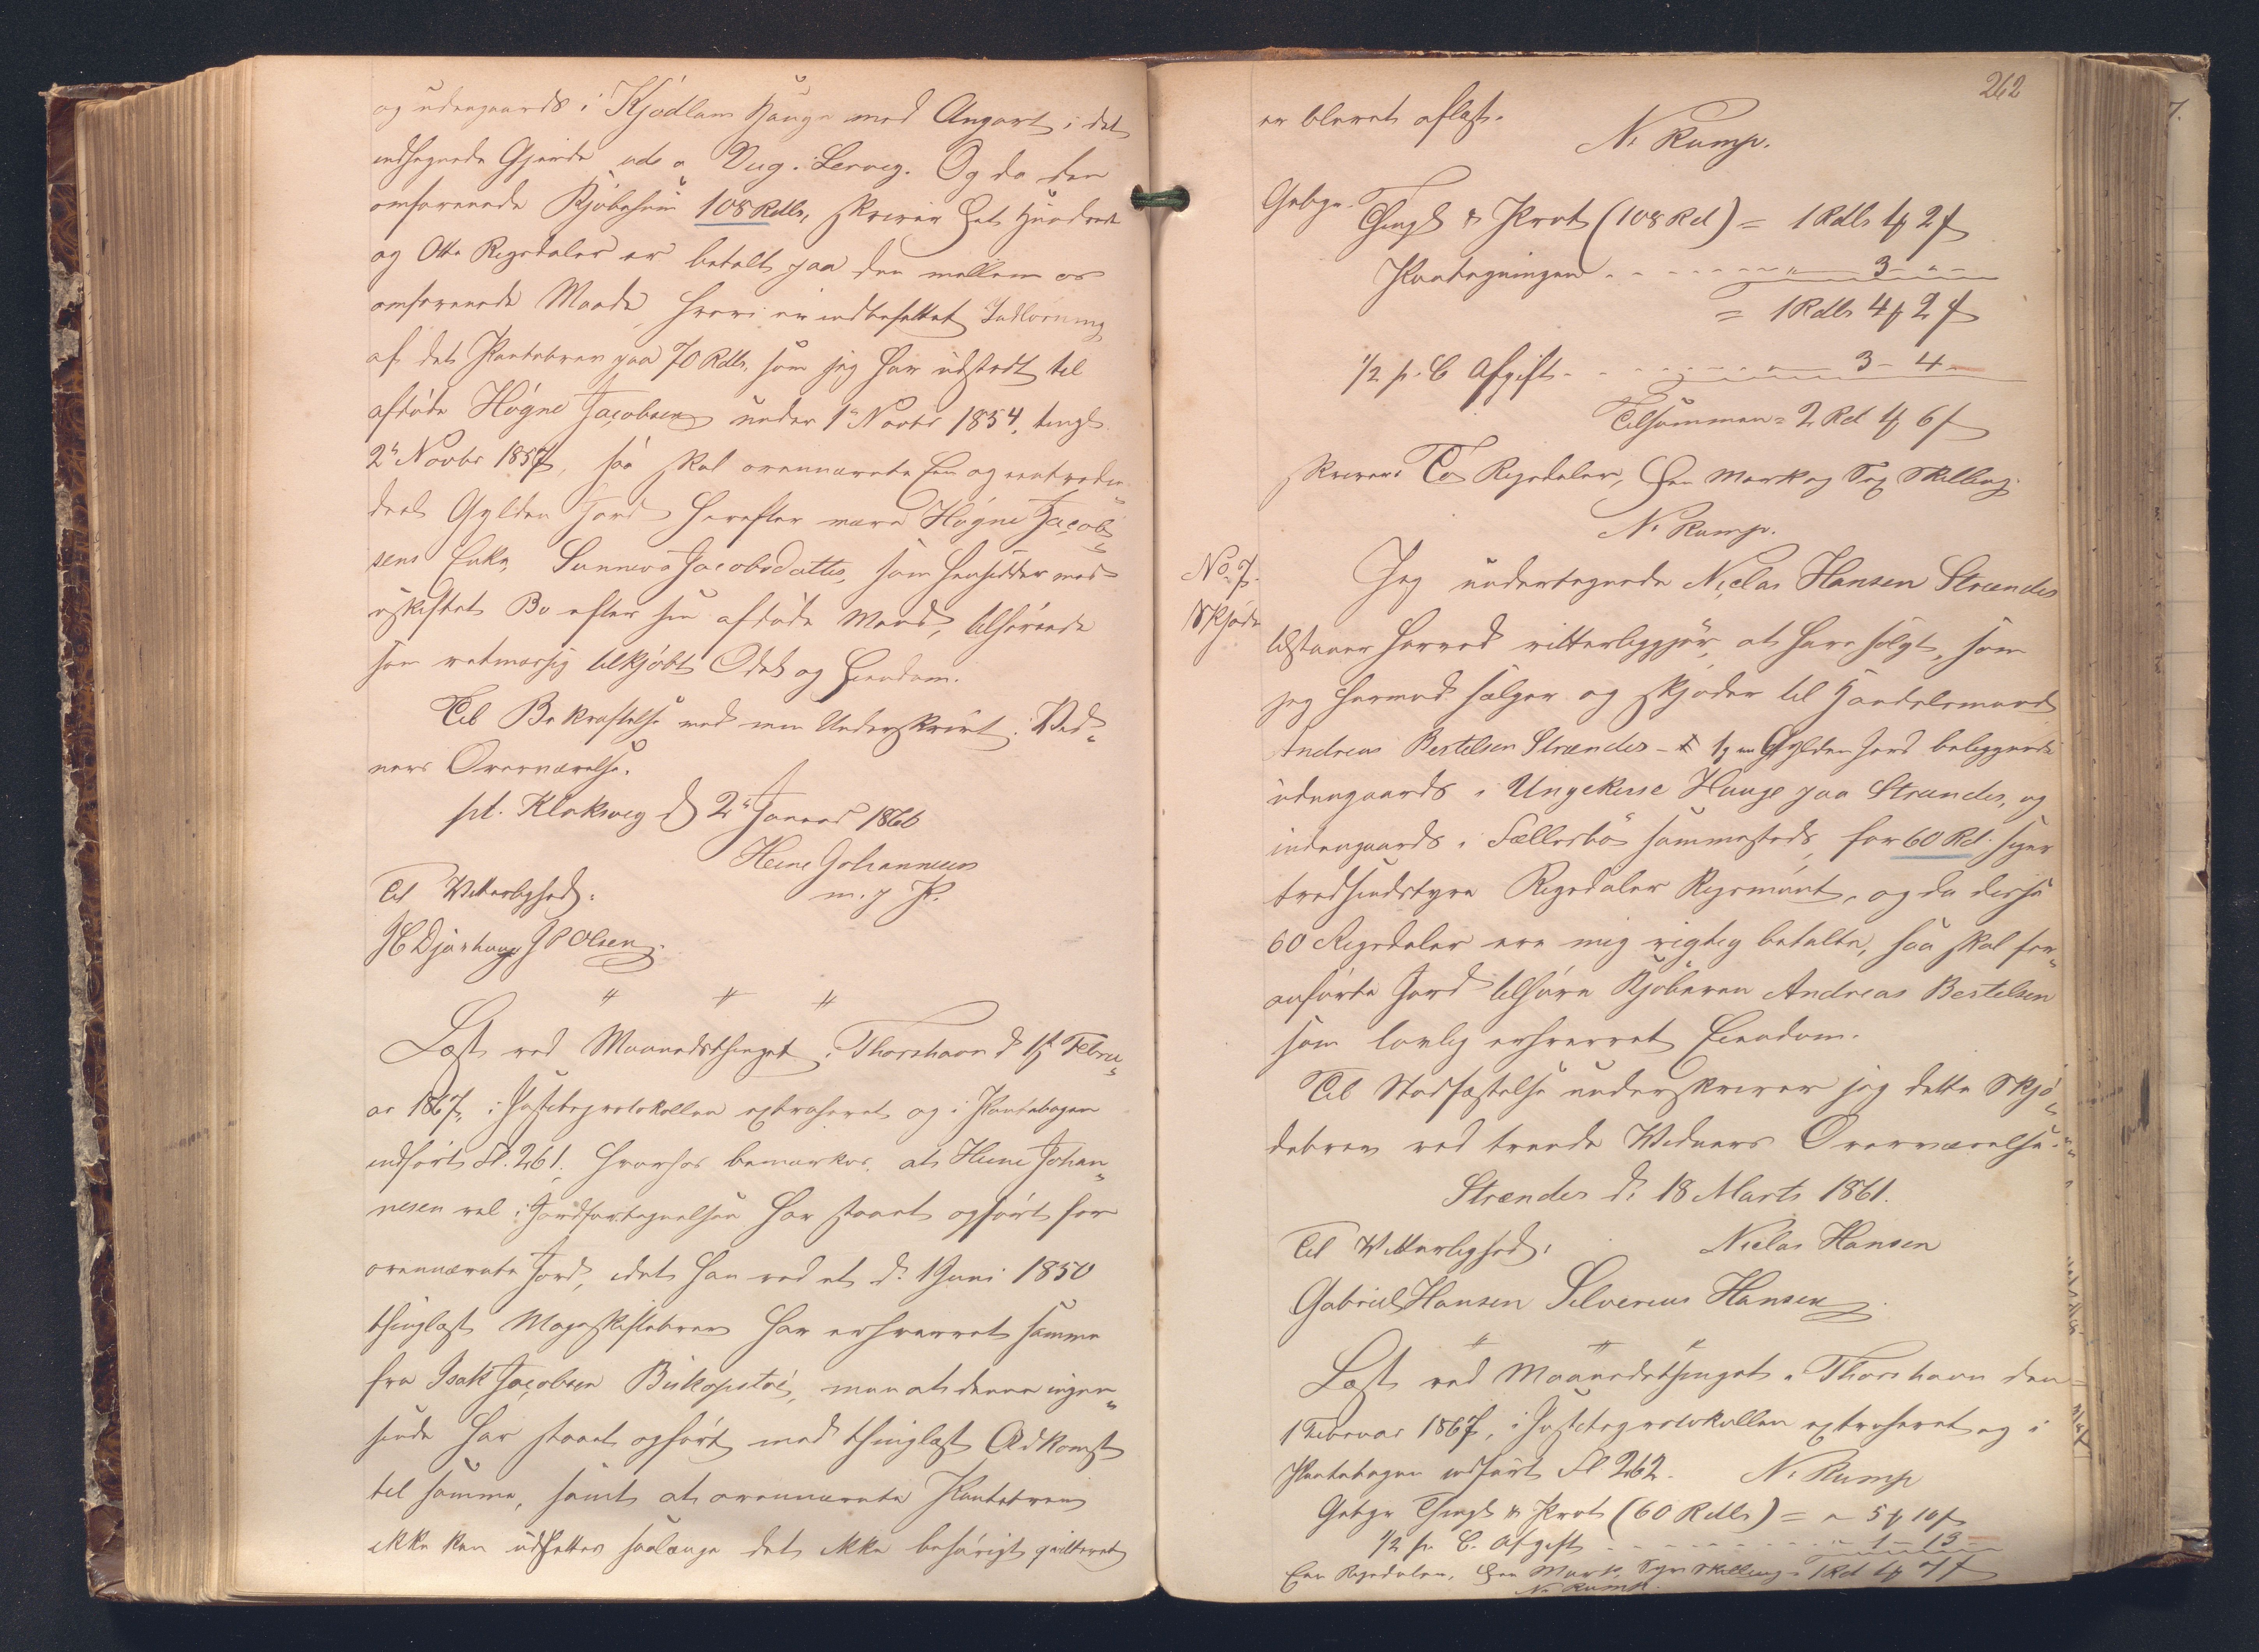 og udengaards i Kjødlum Hauge med Angart i det
indhegnede Gjerde ude a Vug i Lervig. Og da den
omforenede Kjøbesum 108 Rdlr, skriver Eet Hundrede
og Otte Rigsdaler er betalt paa den mellem os
omforenede Maade, hvori er indbefattet Indløsning
af det Pantebrev paa 70 Rdlr, som jeg har udstedt til
afdøde Høgne Jacobsen under 1ste Novbr 1854, tingl.
2den Novbr 1857, saa skal ovennævnte Een og een tredie
deel Gylden Jord herefter være Høgne Jacob
sens Enke, Sunneva Jacobsdatter, som hensidder med
uskiftet Bo efter sin afdøde Mand, tilhørende
som retmæssig tilkjøbt Odel og Eiendom.
Til Bekræftelse med min Underskrivt i Vid
ners Overværelse.
pt. Klaksvig d 2den Januar 1866
Heine Johannesen
m. p. P.
Til Vitterlighed:
JC Djurhuus J P Olsen
" " "
Læst ved Maanedsthinget i Thorshavn d 1st Febru
ar 1867, i Justitsprotokollen extraheret og i Pantebogen
indført Fl. 261, hvorhos bemærkes, at Heine Johan
nesen vel i Jordfortegnelsen har staaet opført for
ovennævnte Jord, idet han ved et d. 1 Juni 1850
thinglæst Mageskiftebrev har erhvervet samme
fra Isak Jacobsen Biskopstøe, men at denne ingen
sinde har staaet opført med thinglæst Adkomst
til samme, samt at ovennævnte Pantebrev
ikke kan udslettes saalænge det ikke behørigt qvitteret
262
er bleven aflæst.
N. Rump.
Gebyr.
Thingl & Prot (108 Rd) = 1 Rdlr 1 ₰ 2 ß
Paategningen - - - - - - " 3 - " -
= 1 Rdlr 4 ₰ 2 ß
1/2 p. C Afgift - - - - - - 3 - 4 -
Tilsammen = 2 Rd 1 ₰ 6 ß
skriver To Rigsdaler, Een Mark og Sex Skilling.
N. Rump.
No 7.
Skjøde
Jeg undertegnede Niclas Hansen Strænder
tilstaaer herved vitterliggjør, at have solgt, som
jeg hermed sælger og skjøder til Handelsmand
Andreas Bertelsen Strænder - 1 Gylden Jord beliggende
udengaards i Ungekirse Hauge paa Strænder, og
indengaards i Fællesbø sammesteds, for 60 Rd. siger
tredsindstyve Rigsdaler Rigsmønt, og da disse
60 Rigsdaler ere mig rigtig betalte, saa skal for
anførte Jord tilhøre Kjøberen Andreas Bertelsen
som lovlig erhvervet Eiendom.
Til Stadfæstelse underskriver jeg dette Skjø
debrev ved tvende Vidners Overværelse.
Strænder d. 18 Marts 1861.
Til Vitterlighed: Niclas Hansen
Gabriel Hansen Silverius Hansen
" " "
Læst ved Maanedsthinget i Thorshavn den
1 Februar 1867, i Justitsprotokollen extraheret og i
Pantebogen indført Fl 262. N. Rump
Gebyr Thingl & Prot (60 Rdlr) = " 5 ₰ 10 ß
1/2 p. C. Afgift - - - - - - " 1 - 13 -
Een Rigsdaler, Een Mark, Syv Skilling = 1 Rd 1 ₰ 7 ß
N. Rump.